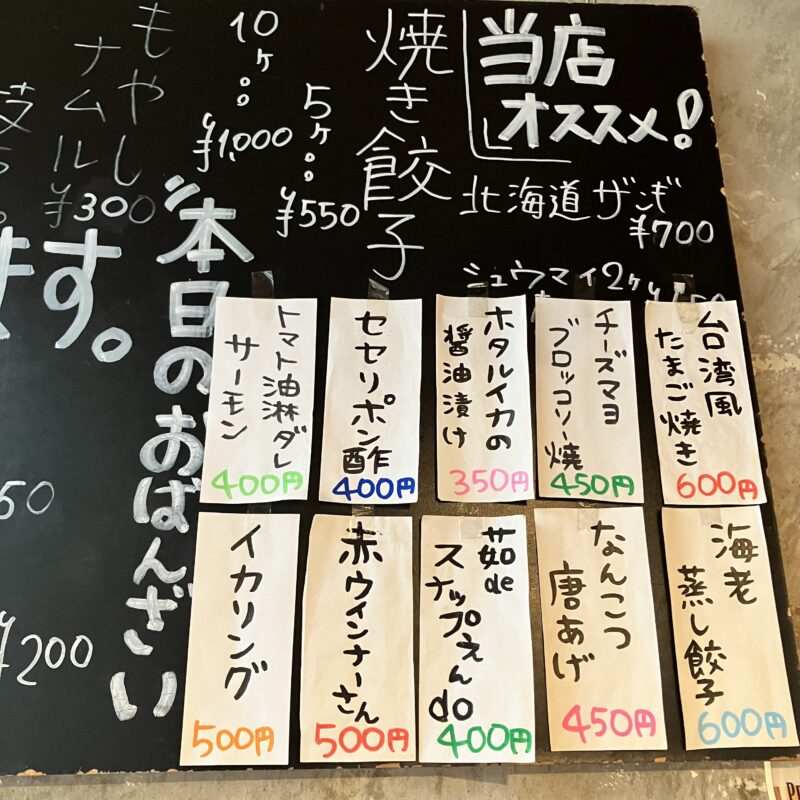 当店
オススメ!
北海道ザンギ
¥700
シュウマイ2ヶ
焼き餃子
5ヶ。。
¥550
10ヶ。。
¥1,000
もやし
ナムル
¥300
ます。
本日のおばんざい
¥200
台湾風
たまご焼き
600円
チーズマヨ
ブロッコリー焼
450円
ホタルイカの
醤油漬け
350円
セセリポン酢
400円
トマト油淋ダレ
サーモン
400円
海老
蒸し餃子
600円
なんこつ
唐あげ
450円
茹de
スナップえんdo
400円
赤ウインナーさん
500円
イカリング
500円